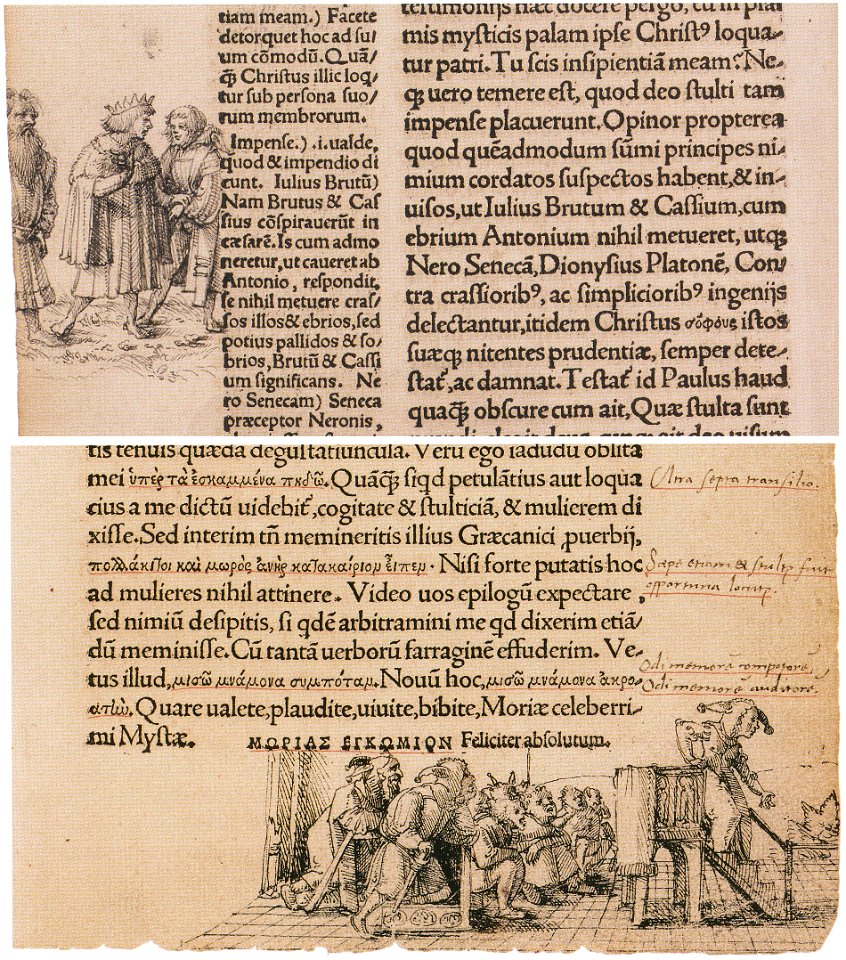 tiam meam.) Facete
detorquet hoc ad su/
um cōmodū. Quā/
q̃ Christus illic loq̄/
tur sub persona suo/
rum membrorum.
Impense.) .i. ualde,
quod & impendio di
cunt. Iulius Brutū)
Nam Brutus & Cas
sius cōspirauerūt in
cæsarē. Is cum admo
neretur, ut caueret ab
Antonio, respondit,
se nihil metuere cras/
sos illos & ebrios, sed
potius pallidos & so/
brios, Brutū & Cassi
um significans. Ne
ro Senecam) Seneca
præceptor Neronis,
testimonijs hæc docere pergo, cū in psal
mis mysticis palam ipse Christꝰ loqua/
tur patri. Tu scis insipientiā meam? Ne/
qꝫ uero temere est, quod deo stulti tam
impense placuerunt. Opinor propterea
quod quēadmodum sūmi principes ni/
mium cordatos suspectos habent, & in/
uisos, ut Iulius Brutum & Cassium, cum
ebrium Antonium nihil metueret, utqꝫ
Nero Senecā, Dionysius Platonē, Con/
tra crassioribꝰ, ac simplicioribꝰ ingenijs
delectantur, itidem Christus σοφοὺς istos
suæqꝫ nitentes prudentiæ, semper dete/
stat̃, ac damnat. Testat̃ id Paulus haud
quaq̃ obscure cum ait, Quæ stulta sunt
tis tenuis quæda degustatiuncula. Verū ego iadudū oblita
mei ὑπὲρ τὰ ἐσκαμμένα πηδῶ. Quāq̃ siqd petulātius aut loqua
cius a me dictū uidebit̃, cogitate & stulticiā, & mulierem di
xisse. Sed interim tñ memineritis illius Græcanici ꝓuerbij,
πολλάκι τοι καὶ μωρὸς ἀνὴρ κατακαίριον εἶπεν. Nisi forte putatis hoc
ad mulieres nihil attinere. Video uos epilogū expectare,
sed nimiū desipitis, si qdē arbitramini me qd dixerim etiā/
dū meminisse. Cū tantā uerborū farraginē effuderim. Ve/
tus illud, μισῶ μνάμονα συμπόταν. Nouū hoc, μισῶ μνάμονα ἀκρο/
ατὴν. Quare ualete, plaudite, uiuite, bibite, Moriæ celeberri/
mi Mystæ.
ΜΩΡΙΑΣ ΕΓΚΩΜΙΟΝ Feliciter absolutum.
Ultra septa transilio.
Sæpe etiam & stultus
opportuna locutus.
Odi memorē compotorē
Odi memorē auditorē.